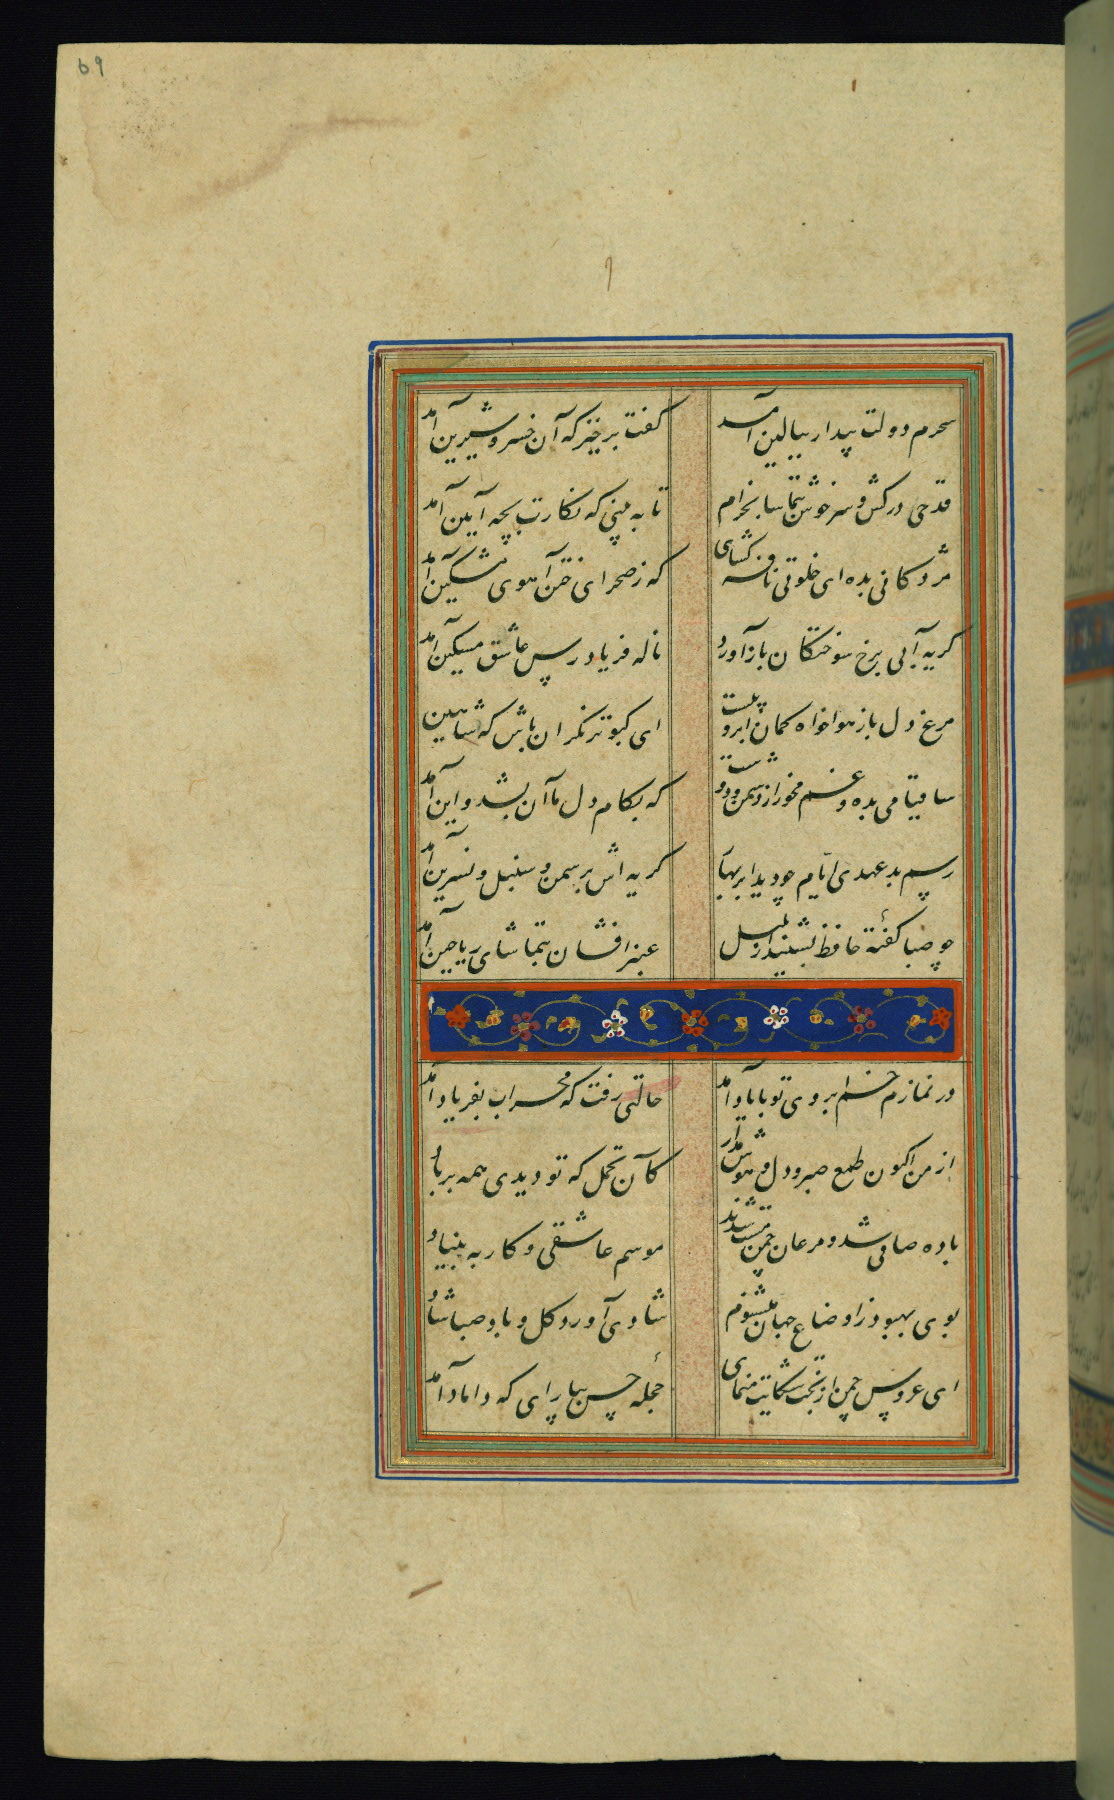 69
سحرم دولت بیدار ببالین آمد
گفت برخیز که آن خسرو شیرین آمد
قدحی درکش و سرخوش بتماشا بخرام
تا به بینی که نکارت بچه آیین آمد
مژدکانی بده ای خلوتی نافه کشای
که ز صحرای ختن آهوی مشکین آمد
کریه آبی برخ سوختکان بازآورد
ناله فریادرس عاشق مسکین آمد
مرغ دل باز هواخواه کمان ابرو پیست
ای کبوتر نکران باش که شاهین
ساقیا می بده و غم مخور از دشمن و دوست
که بکام دل ما آن بشد و این آمد
رسم بدعهدی ایام چو دید ابر بهار
کریه اش بر سمن و سنبل و نسرین آمد
چو صبا کفتهٔ حافظ بشنید از بلبل
عنبر افشان بتماشای ریاحین آمد
در نمازم خم ابروی تو با یاد آمد
حالتی رفت که محراب بفریاد آمد
از من اکنون طمع صبر و دل و هوش مدار
کآن تحمل که تو دیدی همه بر باد
باده صافی شد و مرغان چمن مست شدند
موسم عاشقی و کار به بنیاد
بوی بهبود ز اوضاع جهان میشنوم
شادی آورد کل و باد صبا شاد
ای عروس چمن از بخت شکایت منمای
حجلهٔ حسن بیارای که داماد آمد